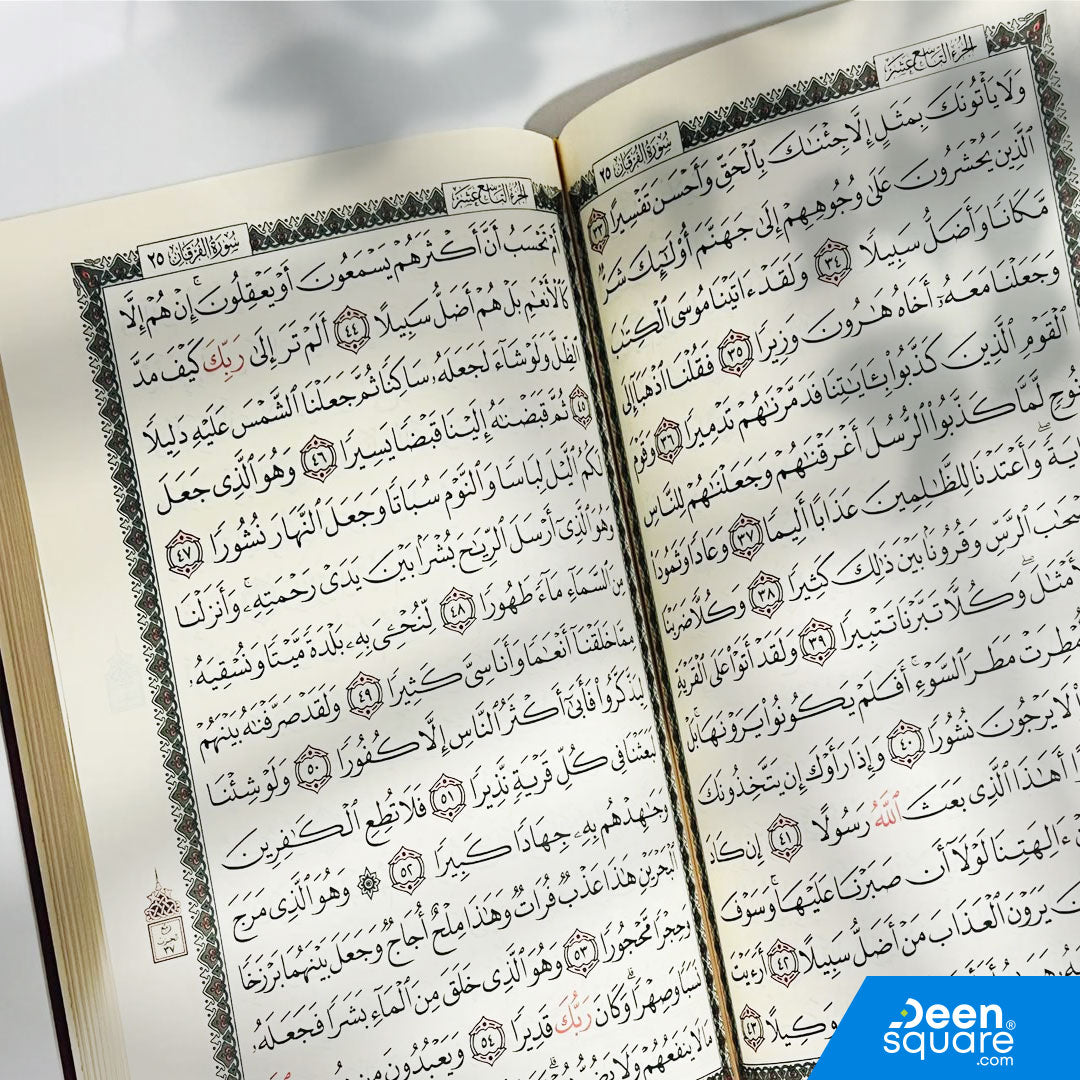 الجُزْءُ التَّاسِعَ عَشَرَ
سُورَةُ الفُرْقَانِ ٢٥
وَلَا يَأْتُونَكَ بِمَثَلٍ إِلَّا جِئْنَٰكَ بِٱلْحَقِّ وَأَحْسَنَ تَفْسِيرًا ٣٣
ٱلَّذِينَ يُحْشَرُونَ عَلَىٰ وُجُوهِهِمْ إِلَىٰ جَهَنَّمَ أُو۟لَٰٓئِكَ شَرٌّ
مَّكَانًا وَأَضَلُّ سَبِيلًا ٣٤ وَلَقَدْ ءَاتَيْنَا مُوسَى ٱلْكِتَٰبَ
وَجَعَلْنَا مَعَهُۥٓ أَخَاهُ هَٰرُونَ وَزِيرًا ٣٥ فَقُلْنَا ٱذْهَبَآ إِلَى
ٱلْقَوْمِ ٱلَّذِينَ كَذَّبُوا۟ بِـَٔايَٰتِنَا فَدَمَّرْنَٰهُمْ تَدْمِيرًا ٣٦ وَقَوْمَ
نُوحٍ لَّمَّا كَذَّبُوا۟ ٱلرُّسُلَ أَغْرَقْنَٰهُمْ وَجَعَلْنَٰهُمْ لِلنَّاسِ
وَأَعْتَدْنَا لِلظَّٰلِمِينَ عَذَابًا أَلِيمًا ٣٧ وَعَادًا وَثَمُودَا۟
ٱلرَّسِّ وَقُرُونًۢا بَيْنَ ذَٰلِكَ كَثِيرًا ٣٨ وَكُلًّا ضَرَبْنَا
ٱلْأَمْثَٰلَ وَكُلًّا تَبَّرْنَا تَتْبِيرًا ٣٩ وَلَقَدْ أَتَوْا۟ عَلَى ٱلْقَرْيَةِ
أُمْطِرَتْ مَطَرَ ٱلسَّوْءِ أَفَلَمْ يَكُونُوا۟ يَرَوْنَهَا بَلْ
لَا يَرْجُونَ نُشُورًا ٤٠ وَإِذَا رَأَوْكَ إِن يَتَّخِذُونَكَ
أَهَٰذَا ٱلَّذِى بَعَثَ ٱللَّهُ رَسُولًا ٤١ إِن كَادَ
ءَالِهَتِنَا لَوْلَآ أَن صَبَرْنَا عَلَيْهَا وَسَوْفَ
يَرَوْنَ ٱلْعَذَابَ مَنْ أَضَلُّ سَبِيلًا ٤٢ أَرَءَيْتَ
وَكِيلًا ٤٣
الجُزْءُ التَّاسِعَ عَشَرَ
سُورَةُ الفُرْقَانِ ٢٥
أَمْ تَحْسَبُ أَنَّ أَكْثَرَهُمْ يَسْمَعُونَ أَوْ يَعْقِلُونَ إِنْ هُمْ إِلَّا
كَٱلْأَنْعَٰمِ بَلْ هُمْ أَضَلُّ سَبِيلًا ٤٤ أَلَمْ تَرَ إِلَىٰ رَبِّكَ كَيْفَ مَدَّ
ٱلظِّلَّ وَلَوْ شَآءَ لَجَعَلَهُۥ سَاكِنًا ثُمَّ جَعَلْنَا ٱلشَّمْسَ عَلَيْهِ دَلِيلًا
٤٥ ثُمَّ قَبَضْنَٰهُ إِلَيْنَا قَبْضًا يَسِيرًا ٤٦ وَهُوَ ٱلَّذِى جَعَلَ
لَكُمُ ٱلَّيْلَ لِبَاسًا وَٱلنَّوْمَ سُبَاتًا وَجَعَلَ ٱلنَّهَارَ نُشُورًا ٤٧
وَهُوَ ٱلَّذِىٓ أَرْسَلَ ٱلرِّيَٰحَ بُشْرًۢا بَيْنَ يَدَىْ رَحْمَتِهِۦ وَأَنزَلْنَا
مِنَ ٱلسَّمَآءِ مَآءً طَهُورًا ٤٨ لِّنُحْـِۧىَ بِهِۦ بَلْدَةً مَّيْتًا وَنُسْقِيَهُۥ
مِمَّا خَلَقْنَآ أَنْعَٰمًا وَأَنَاسِىَّ كَثِيرًا ٤٩ وَلَقَدْ صَرَّفْنَٰهُ بَيْنَهُمْ
لِيَذَّكَّرُوا۟ فَأَبَىٰٓ أَكْثَرُ ٱلنَّاسِ إِلَّا كُفُورًا ٥٠ وَلَوْ شِئْنَا
لَبَعَثْنَا فِى كُلِّ قَرْيَةٍ نَّذِيرًا ٥١ فَلَا تُطِعِ ٱلْكَٰفِرِينَ
وَجَٰهِدْهُم بِهِۦ جِهَادًا كَبِيرًا ٥٢ ۞ وَهُوَ ٱلَّذِى مَرَجَ
ٱلْبَحْرَيْنِ هَٰذَا عَذْبٌ فُرَاتٌ وَهَٰذَا مِلْحٌ أُجَاجٌ وَجَعَلَ بَيْنَهُمَا بَرْزَخًا
وَحِجْرًا مَّحْجُورًا ٥٣ وَهُوَ ٱلَّذِى خَلَقَ مِنَ ٱلْمَآءِ بَشَرًا فَجَعَلَهُۥ
نَسَبًا وَصِهْرًا وَكَانَ رَبُّكَ قَدِيرًا ٥٤ وَيَعْبُدُونَ مِن
مَا لَا يَنفَعُهُمْ وَلَا
٣٧
Deen
square®
.com